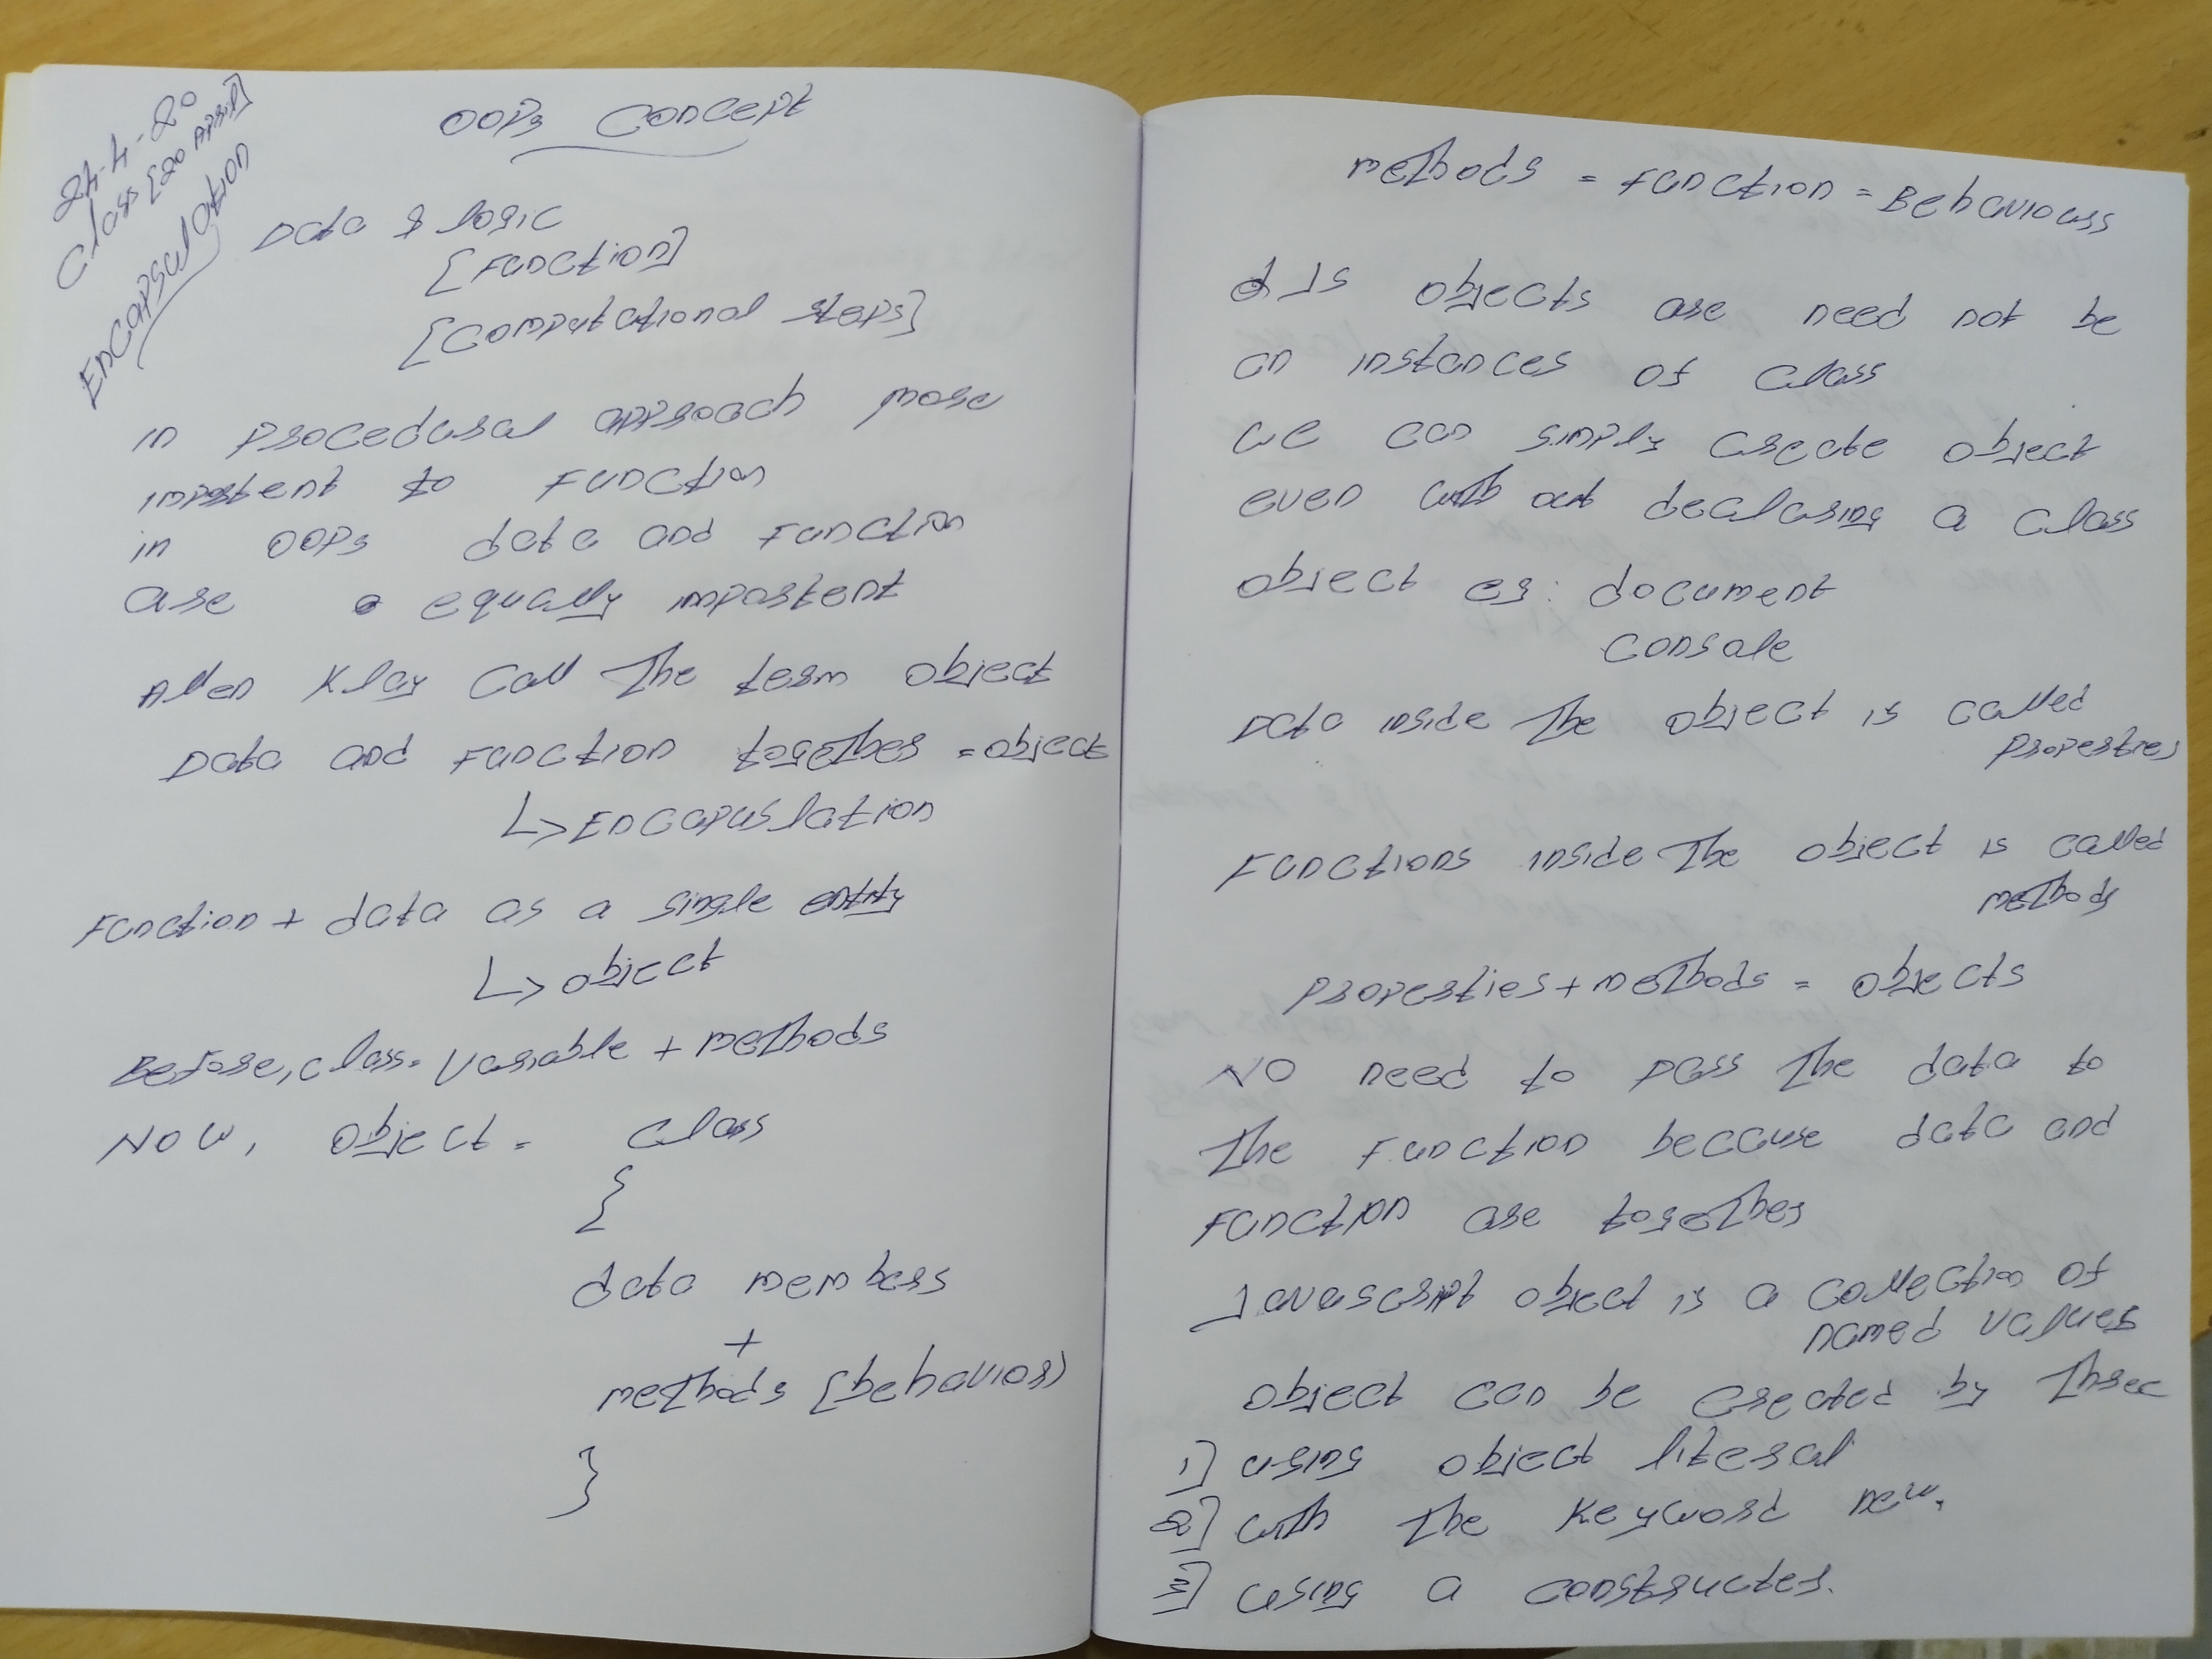 24-4-20
Class [20 April]
Encapsulation
OOPs Concept
Data & logic
[Function]
[Computational steps]
in procedural approach more
importent to function
in OOPs data and function
are equally importent
Allen Klay Call The term object
Data and function together = object
↳ Encapuslation
Function + data as a single entity
↳ object
Before, class = Variable + methods
Now, object = class
{
data members
+
methods [behavior)
}
methods = function = Behaviours
JS objects are need not be
an instances of class
we can simply create object
even with out declaring a class
object eg: document
consale
Data inside The object is called
properties
Functions inside The object is called
methods
properties + methods = objects
No need to pass The data to
The function because data and
function are together
Javascript object is a collection of
named values
object can be created by Three
1] using object literal
2] with The keyword new.
3] using a constructer.